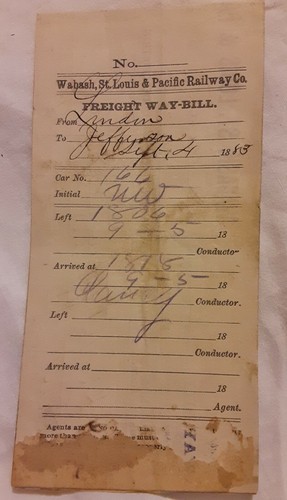 No.
Wabash, St. Louis & Pacific Railway Co.
FREIGHT WAY-BILL.
From Linden
To Jefferson
Sept. 4 1885
Car No. 166
Initial NW
Left 1806
9-5 18
Conductor
Arrived at 1818
9-5 18
Conductor.
Left
18
Conductor.
Arrived at
18
Agent.
Agents are
more than